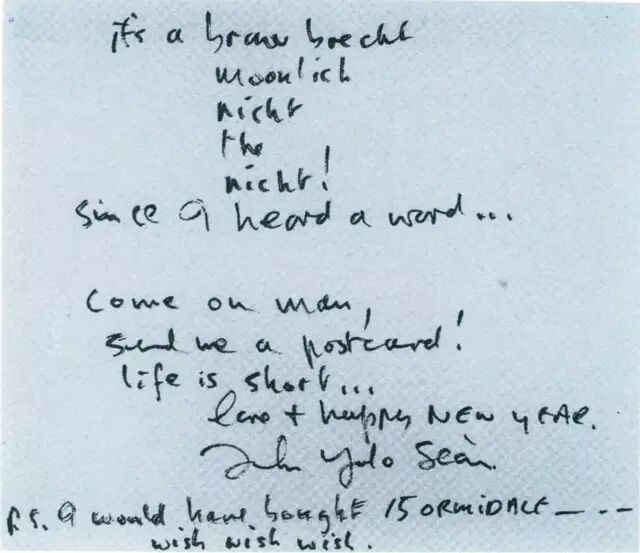 it's a braw brecht
moonlich
nicht
the
nicht!
Since I heard a word...
Come on man,
send me a postcard!
life is short...
love + happy NEW YEAR.
John Yoko Seàn.
P.S. I would have bought 15 ORMIDALE — - -
wish wish wish.